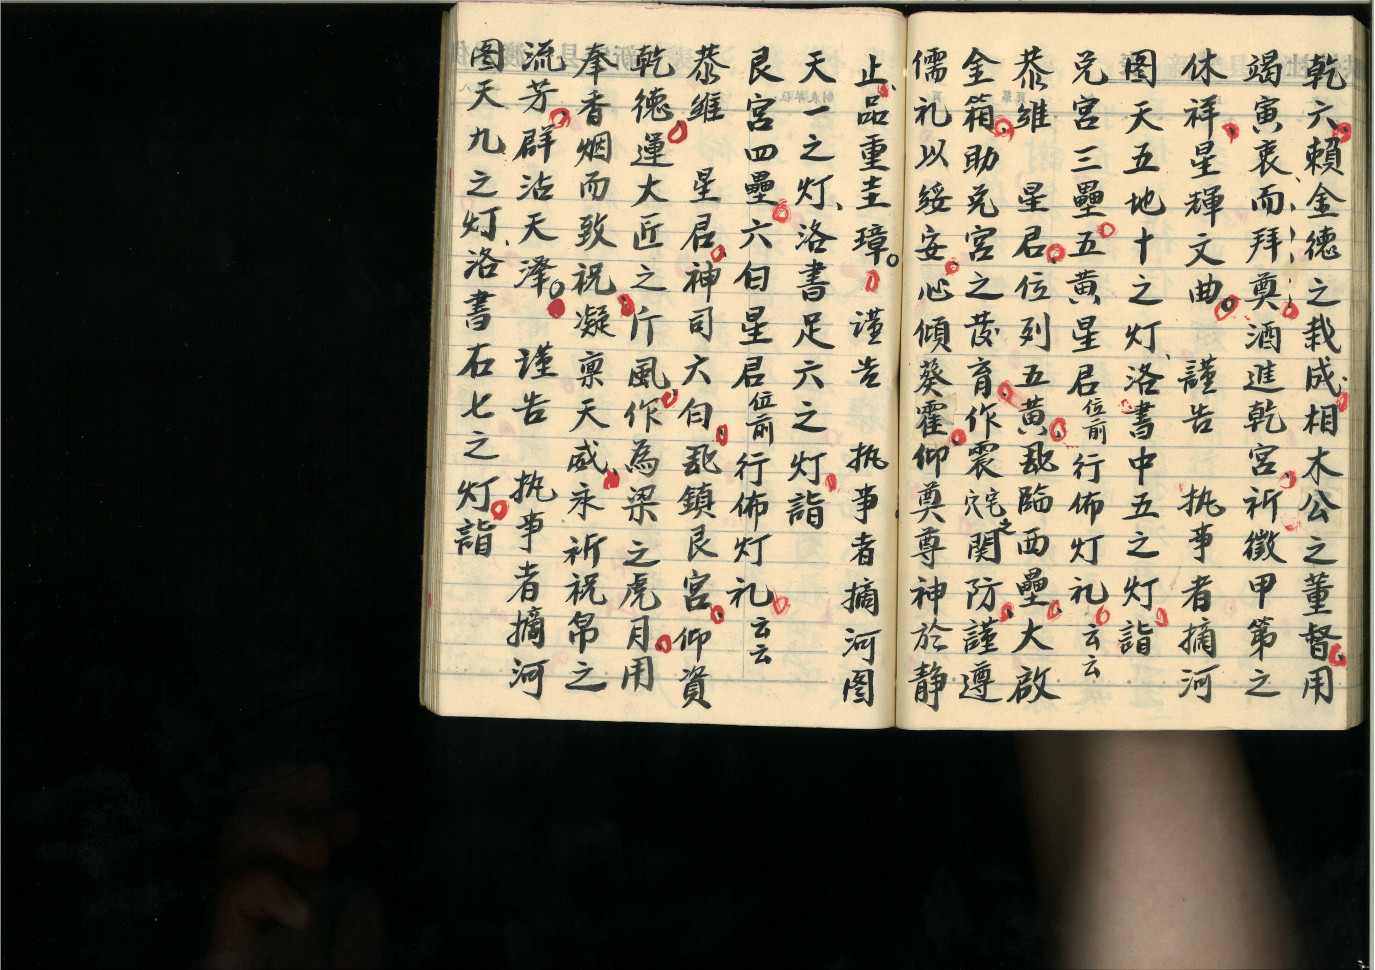 乾六賴金德之栽成相木公之董督用
竭寅衷而拜奠酒進乾宮祈徵甲第之
休祥星輝文曲 謹告 执事者摘河
图天五地十之灯洛書中五之灯詣
兑宮三壘五黄星君位前行佈灯礼云云
恭維 星君位列五黄臨西壘大啟
金箱助兑宮之發育作震之関防謹遵
儒礼以綏安心傾葵霍仰奠尊神於静
止品重圭璋 谨告 执事者摘河图
天一之灯洛書足六之灯詣
艮宮四壘六白星君位前行佈灯礼云云
恭維 星君神司六白鎮艮宮仰資
乾德運大匠之斤風作為梁之虎月用
奉香烟而致祝凝禀天威永祈祝帛之
流芳群沾天泽 谨告 执事者摘河
图天九之灯洛書右七之灯詣